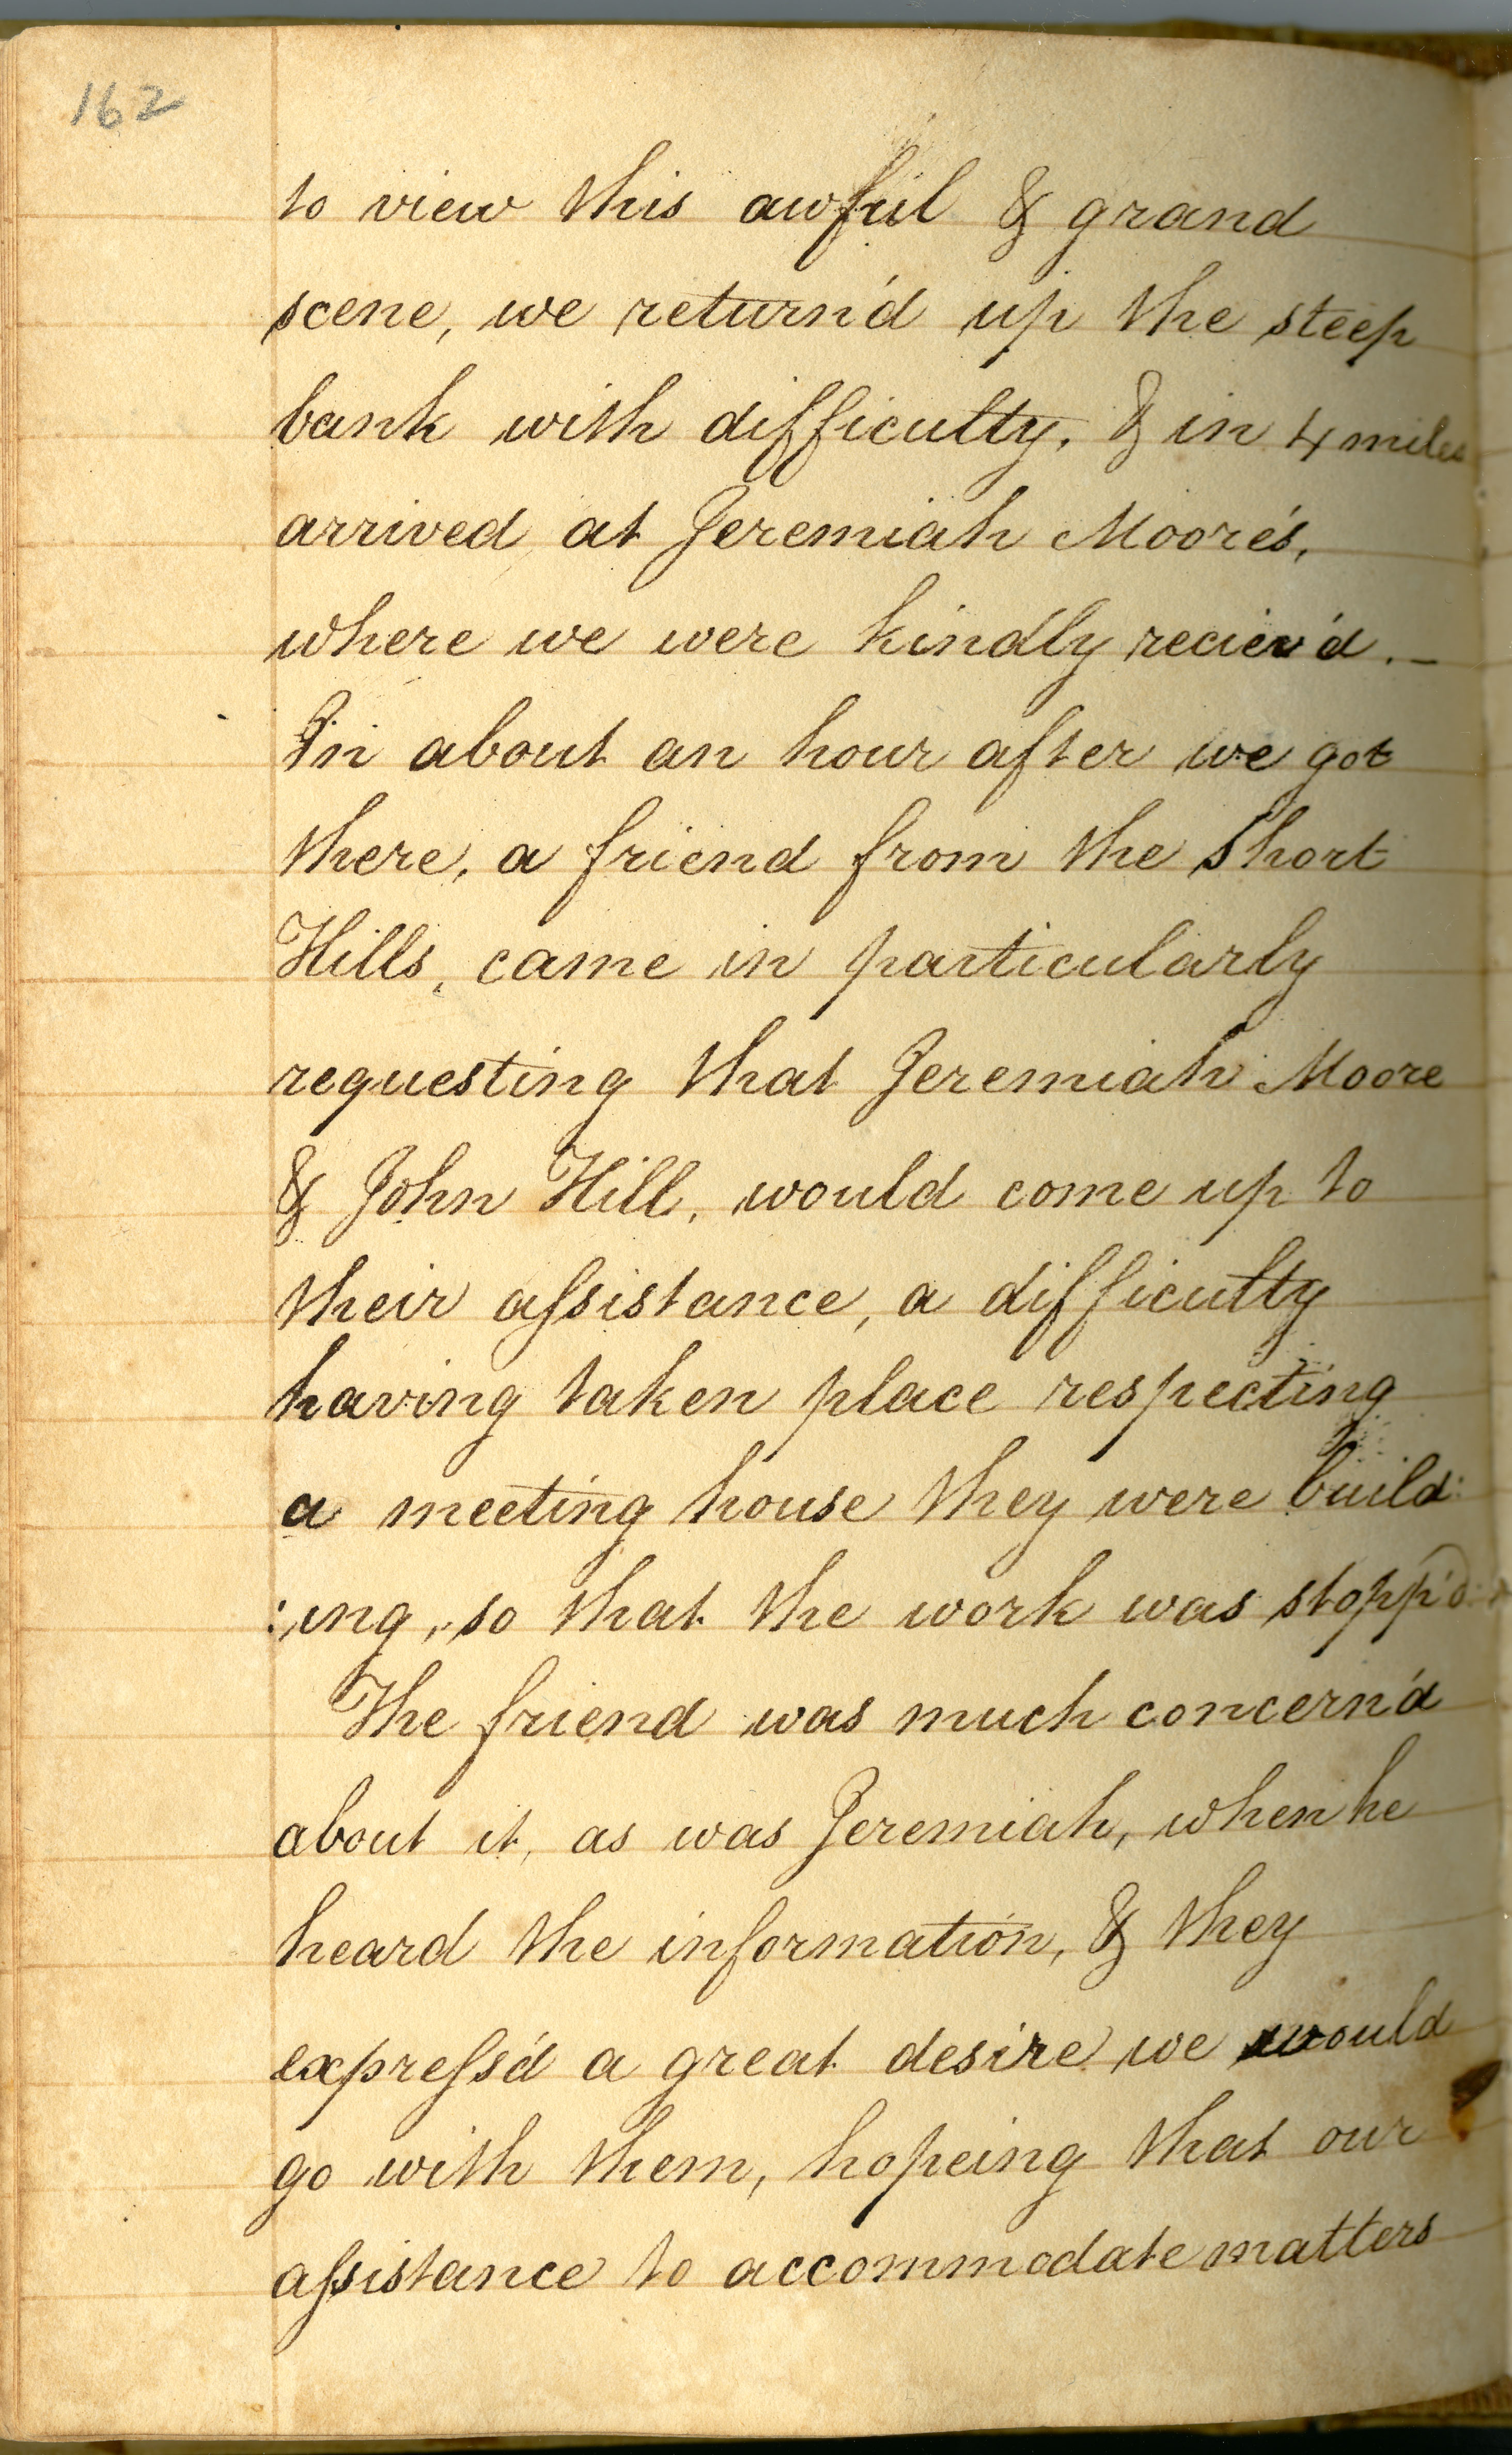 162
to view this awful & grand
scene, we return'd up the steep
bank with difficulty, & in 4 miles
arrived at Jeremiah Moore's,
where we were kindly reciev'd. –
In about an hour after we got
there, a friend from the Short
Hills, came in particularly
requesting that Jeremiah Moore
& John Hill, would come up to
their aſsistance, a difficulty
having taken place respecting
a meeting house they were build:
:ing, so that the work was stopp'd
The friend was much concern'd
about it, as was Jeremiah, when he
heard the information, & they
expreſs'd a great desire we would
go with them, hopeing that our
aſsistance to accommodate matters